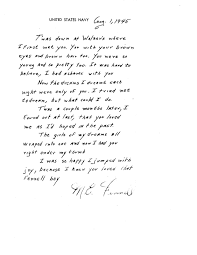 UNITED STATES NAVY
Aug. 1, 1945
Twas down at Walson's where
I first met you. You with your brown
eyes and brown hair too. You were so
young and so pretty too. It was hard to
believe, I had a chance with you
Now the dreams I dreamed each
night were only of you. I tried not
to dream, but what could I do.
Twas a couple months later, I
found out at last, that you loved
me as I'd hoped in the past.
The girls of my dreams all
wraped into one and now I had you
right under my thumb
I was so happy I jumped with
joy, because I knew you loved that
Fennell boy.